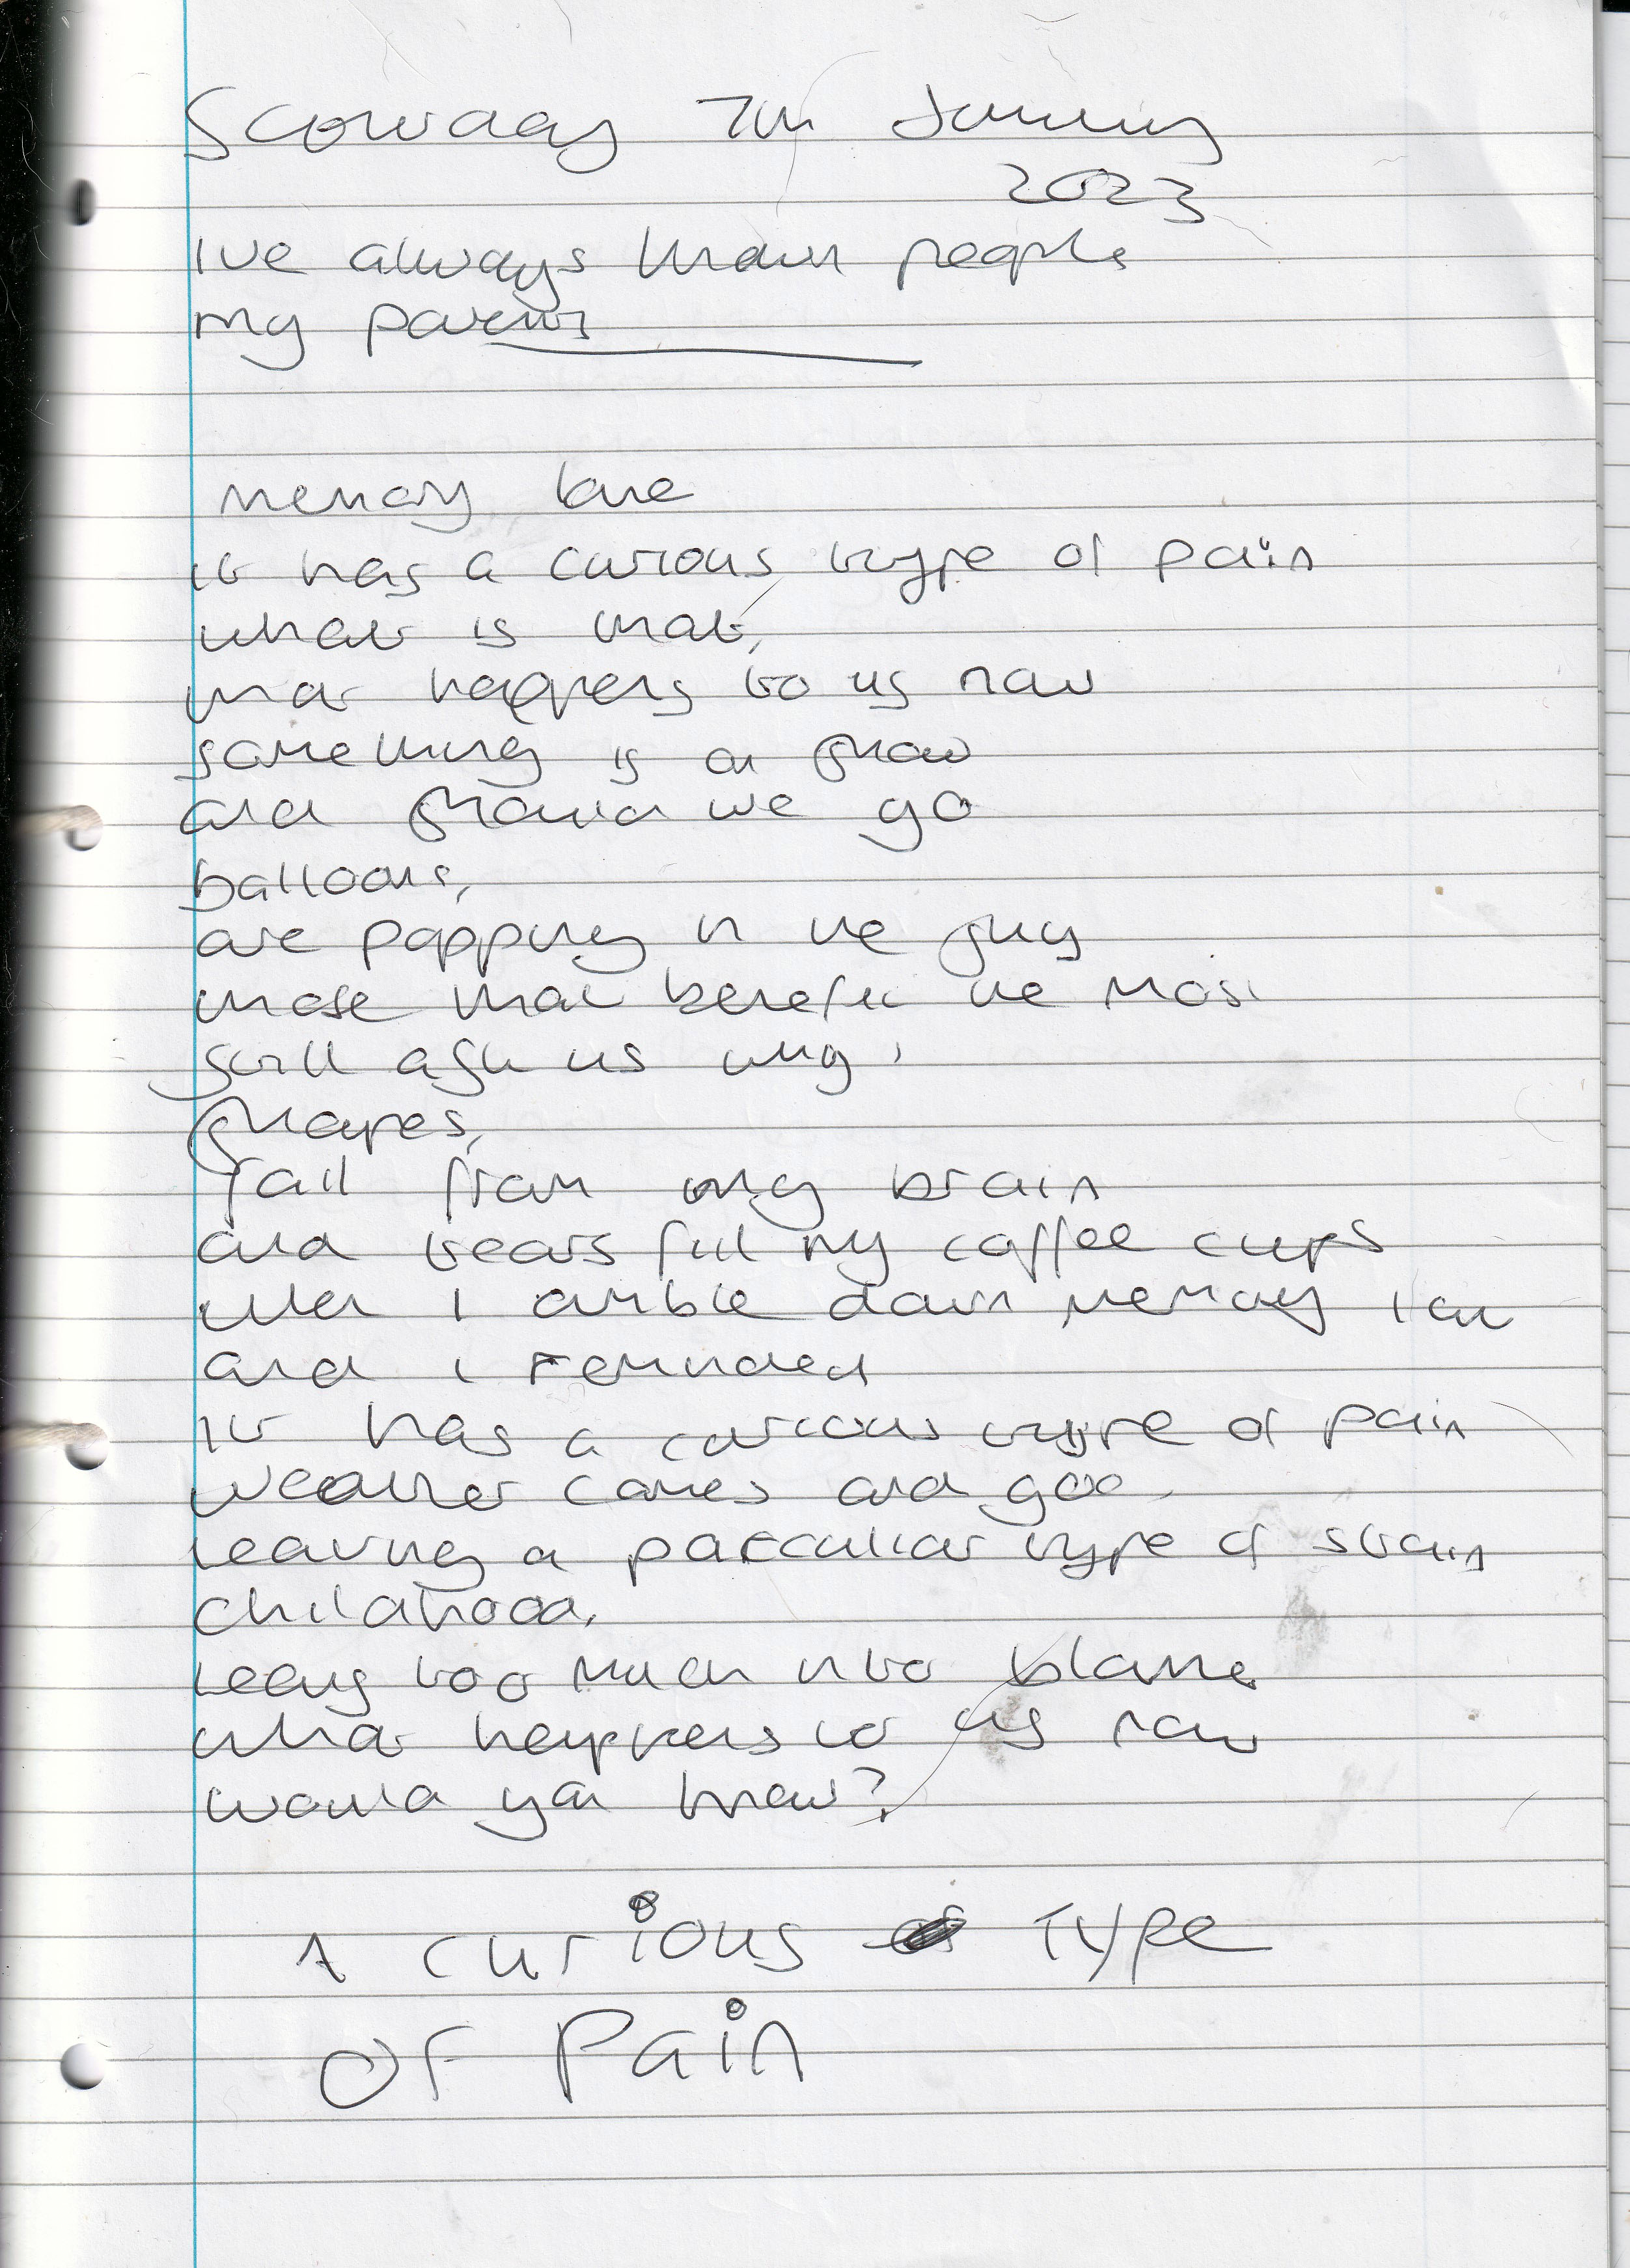 Saturday 7th January
2023
Ive always known people
my parents
memory lane
it has a curious type of pain
what is that,
what happens to us now
something is on show
and should we go
balloons,
are popping in the sky
those that benefit the most
still ask us why,
shapes,
fall from my brain
and tears fill my coffee cups
when I amble down memory lane
and i reminded
It has a curious type of pain
weather comes and goes
leaving a particular type of strain
childhood,
leans too much into blame
what happens to us now
would you know?
A curious Type
OF Pain